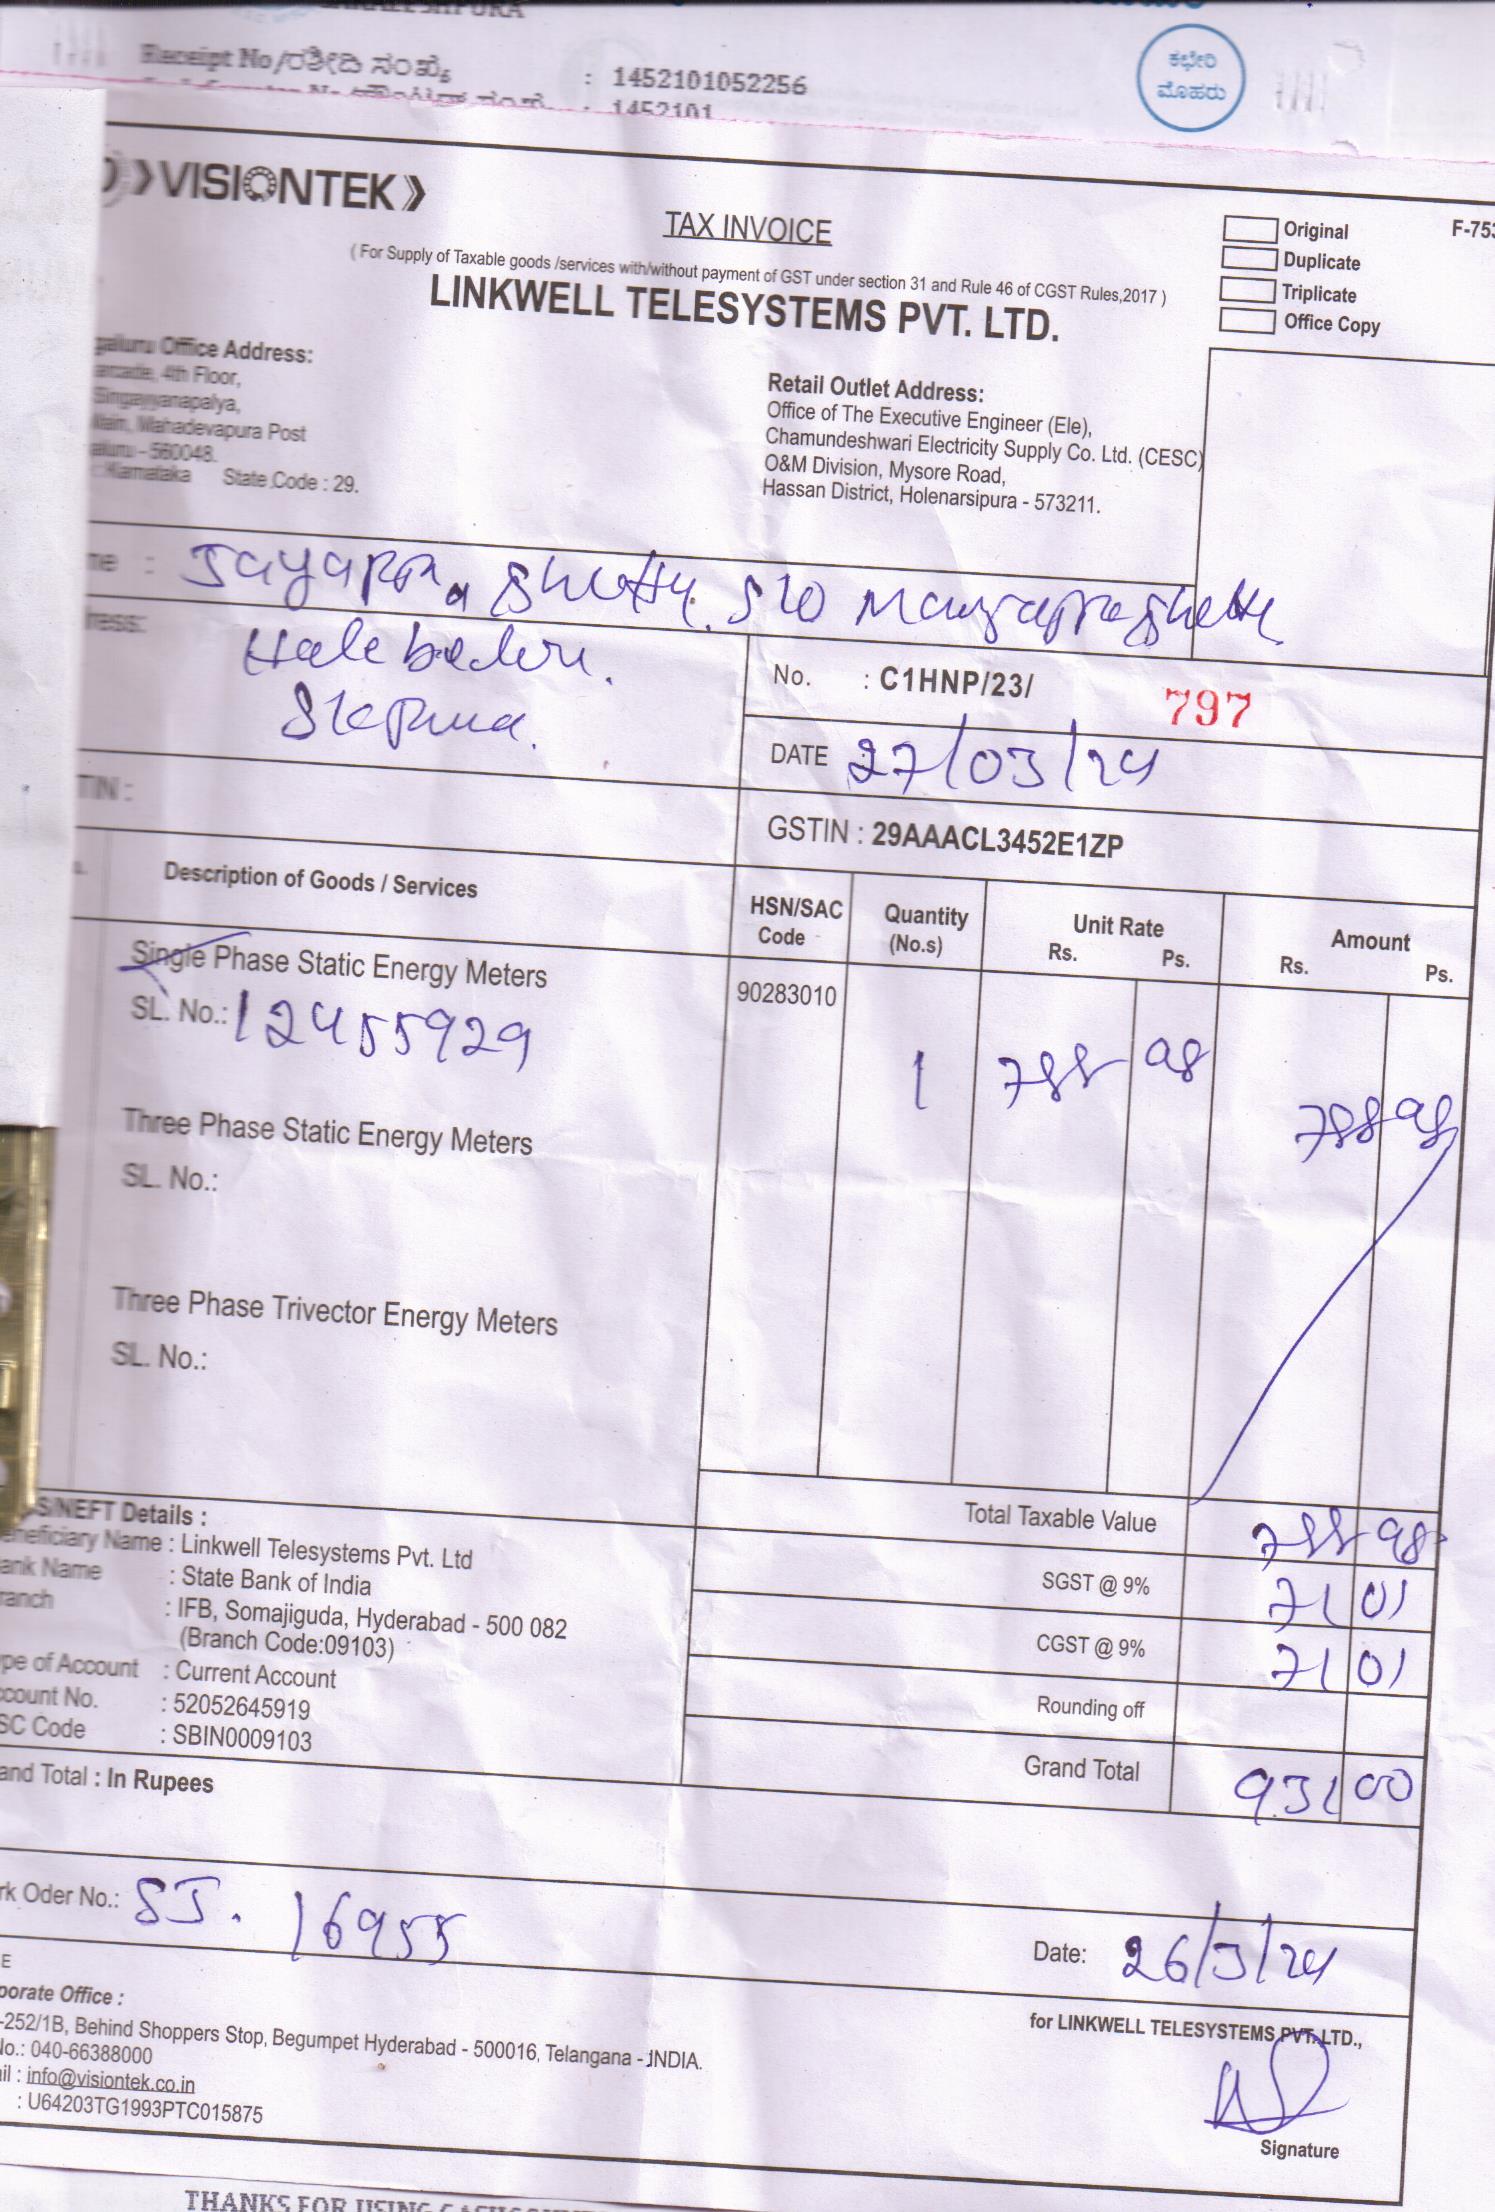 Receipt No/ರಶೀದಿ ಸಂಖ್ಯೆ : 1452101052256
: 1452101
ಕಛೇರಿ
ಮೊಹರು
VISIONTEK
TAX INVOICE
( For Supply of Taxable goods /services with/without payment of GST under section 31 and Rule 46 of CGST Rules,2017 )
LINKWELL TELESYSTEMS PVT. LTD.
Original
Duplicate
Triplicate
Office Copy
F-753
galuru Office Address:
arcade, 4th Floor,
Singayyanapalya,
Main, Mahadevapura Post
aluru - 560048.
: Karnataka State Code : 29.
Retail Outlet Address:
Office of The Executive Engineer (Ele),
Chamundeshwari Electricity Supply Co. Ltd. (CESC)
O&M Division, Mysore Road,
Hassan District, Holenarsipura - 573211.
me : Jayaram Shetty. S/o
ress: Halebelur.
No. : C1HNP/23/ 797
DATE 27/03/24
TIN :
GSTIN : 29AAACL3452E1ZP
Description of Goods / Services HSN/SAC Code Quantity (No.s) Unit Rate Rs. Ps. Amount Rs. Ps.
Single Phase Static Energy Meters 90283010
SL. No.: 12455929 1 788 98 788 98
Three Phase Static Energy Meters
SL. No.:
Three Phase Trivector Energy Meters
SL. No.:
Total Taxable Value 788 98
SGST @ 9% 71 01
CGST @ 9% 71 01
Rounding off
Grand Total 931 00
S/NEFT Details :
eneficiary Name : Linkwell Telesystems Pvt. Ltd
ank Name : State Bank of India
ranch : IFB, Somajiguda, Hyderabad - 500 082
(Branch Code:09103)
ype of Account : Current Account
ccount No. : 52052645919
SC Code : SBIN0009103
and Total : In Rupees
rk Oder No.: SJ. 16955
Date: 26/3/24
E
porate Office :
-252/1B, Behind Shoppers Stop, Begumpet Hyderabad - 500016, Telangana - INDIA.
No.: 040-66388000
ail : info@visiontek.co.in
: U64203TG1993PTC015875
for LINKWELL TELESYSTEMS PVT. LTD.,
Signature
THANKS FOR USING